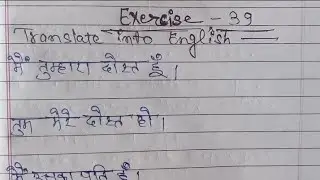 Exercise - 39
Translate into English
मैं तुम्हारा दोस्त हूँ।
तुम मेरे दोस्त हो।
मैं उसका पति हूँ।